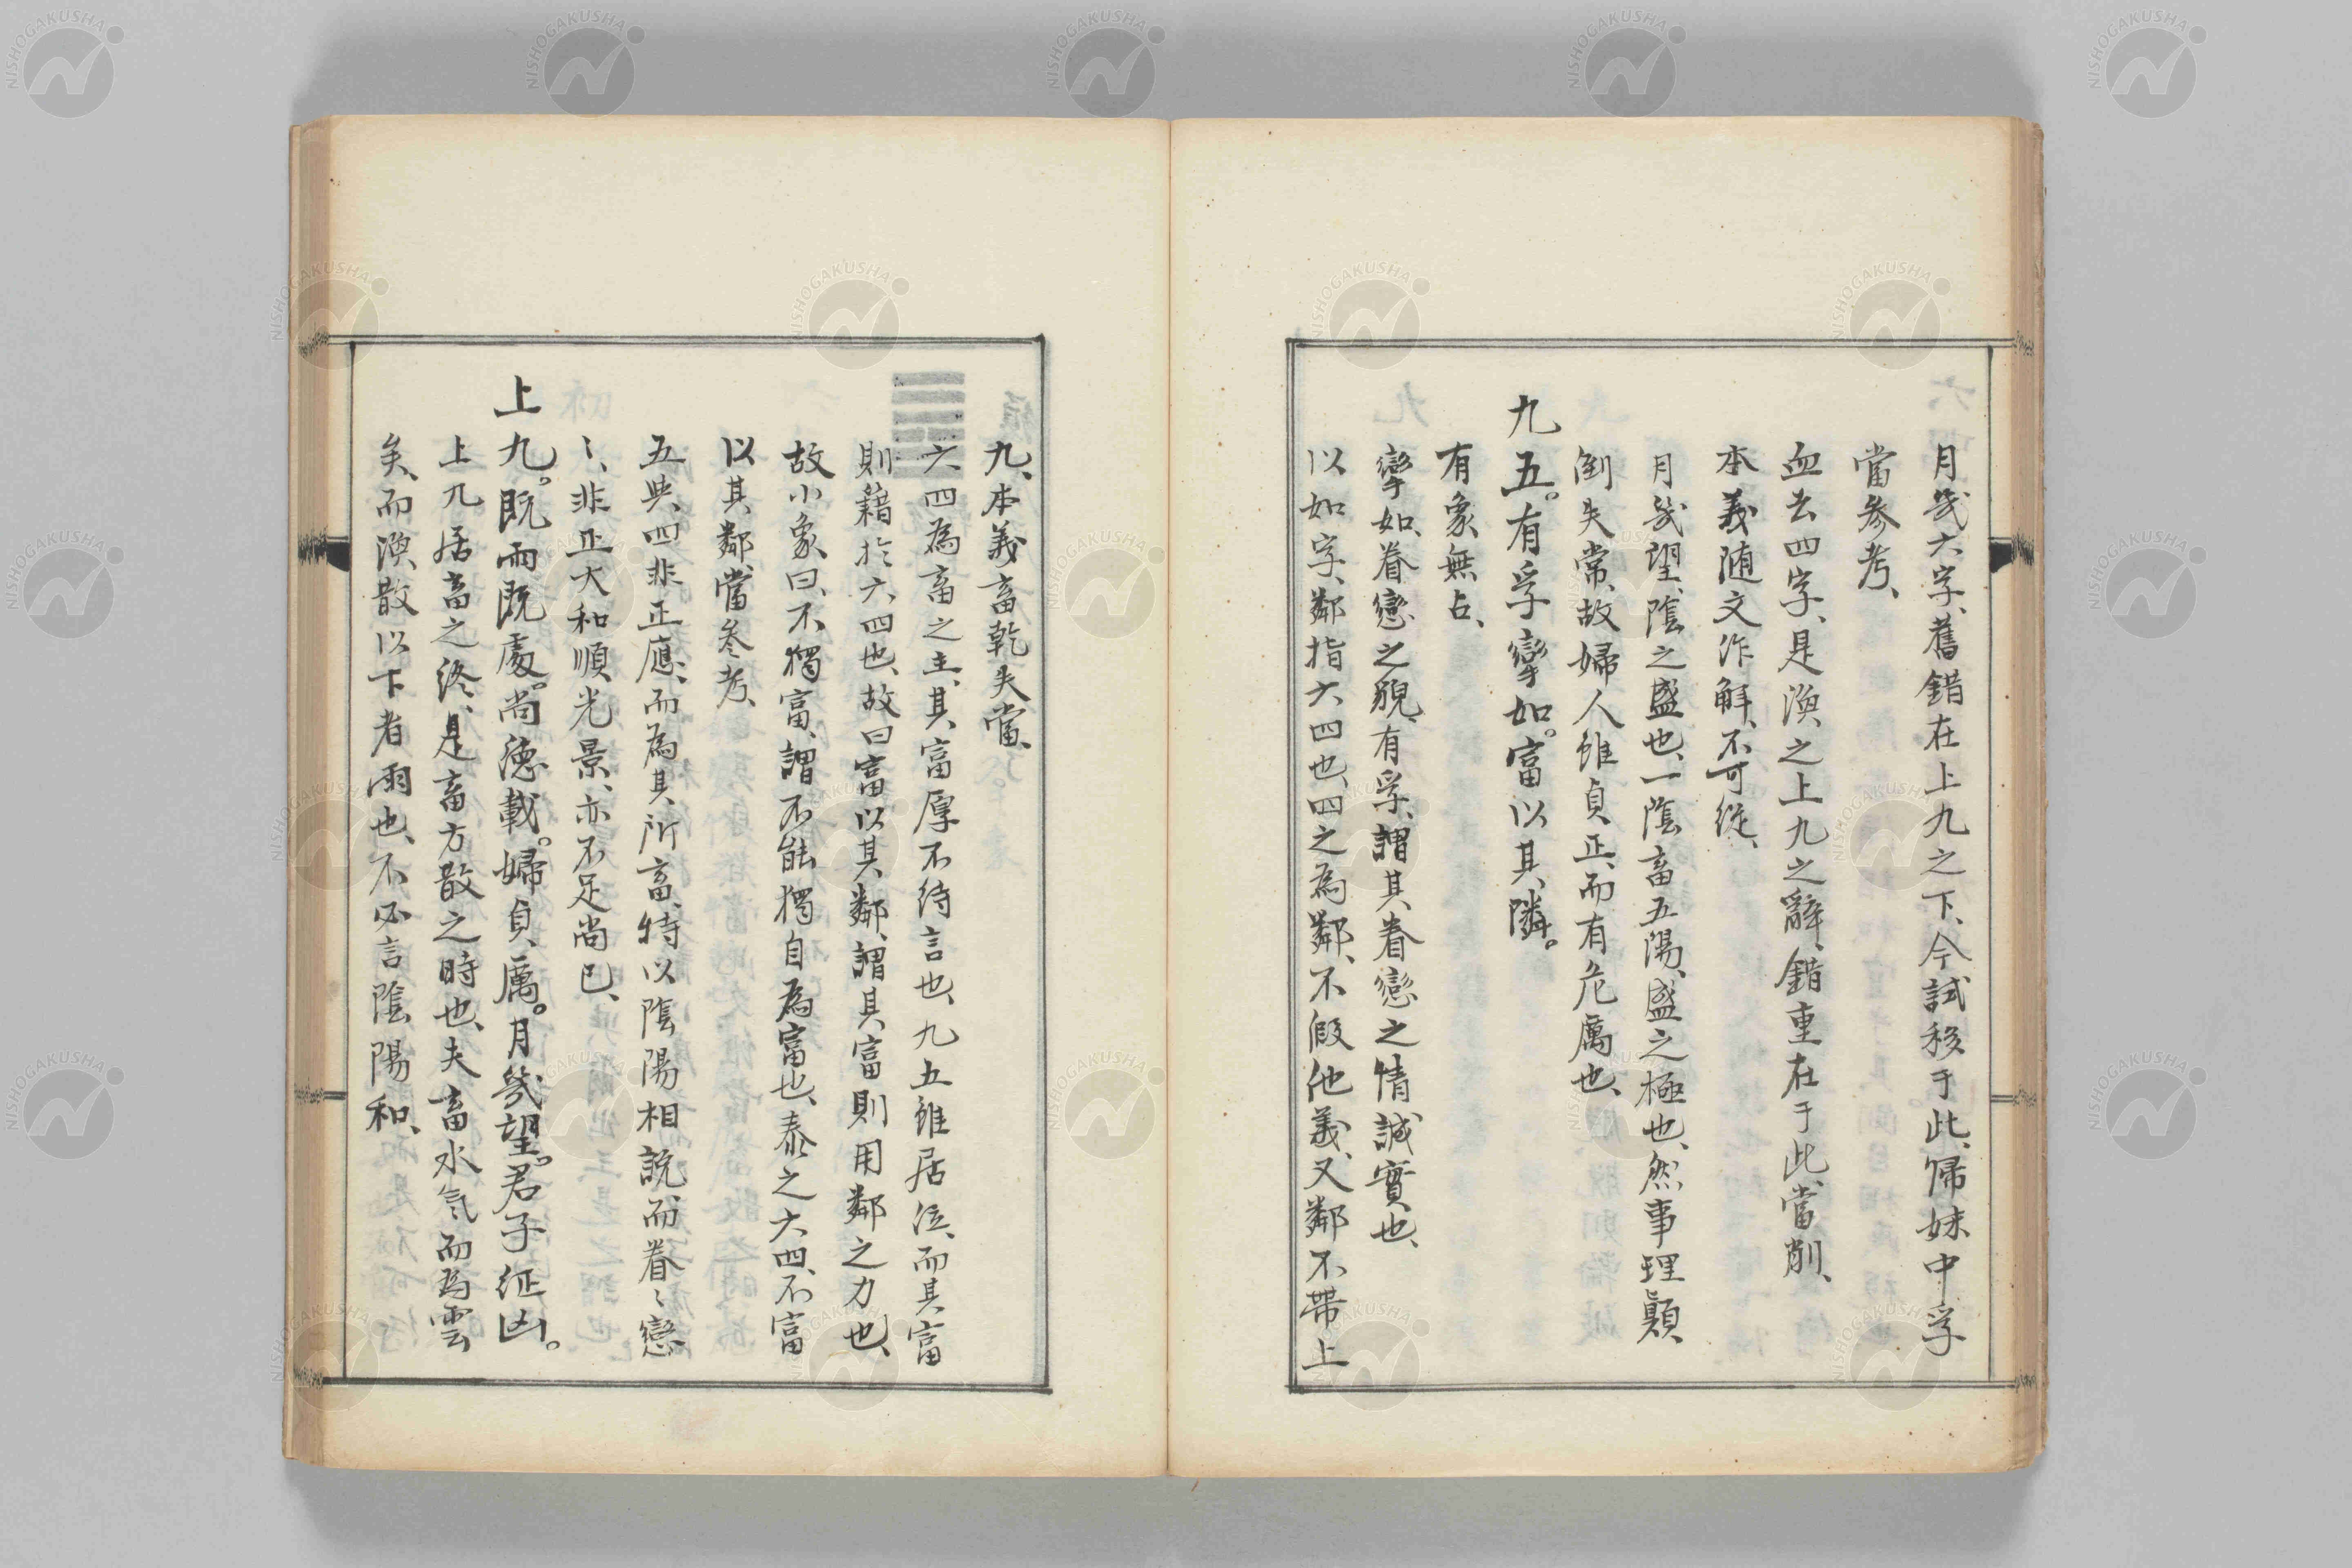 月幾六字、舊錯在上九之下、今試移于此、帰妹中孚
當参考、
血去四字、是渙之上九之辭、錯重在于此、當削、
本義随文作解、不可從、
月幾望、陰之盛也、一陰畜五陽、盛之極也、然事理顛
倒失常、故婦人雖貞正、而有危厲也、
九五。有孚攣如。富以其隣。
有象無占、
攣如、眷戀之貌、有孚、謂其眷戀之情誠實也、
以如字、鄰指六四也、四之為鄰、不假他義、又鄰不帶上
九、本義畜乾失當、
六四為畜之主、其富厚不待言也、九五雖居位、而其富
則藉於六四也、故曰富以其鄰、謂其富則用鄰之力也、
故小象曰、不獨富、謂不能獨自為富也、泰之六四、不富
以其鄰、當参考、
五與四非正應、而為其所畜、特以陰陽相説而眷〻戀
〻、非正大和順光景、亦不足尚已、
上九。既雨既處。尚德載。婦貞厲。月幾望。君子征凶。
上九居畜之終、是畜方散之時也、夫畜水気而為雲
矣、而渙散以下者雨也、不必言陰陽和、